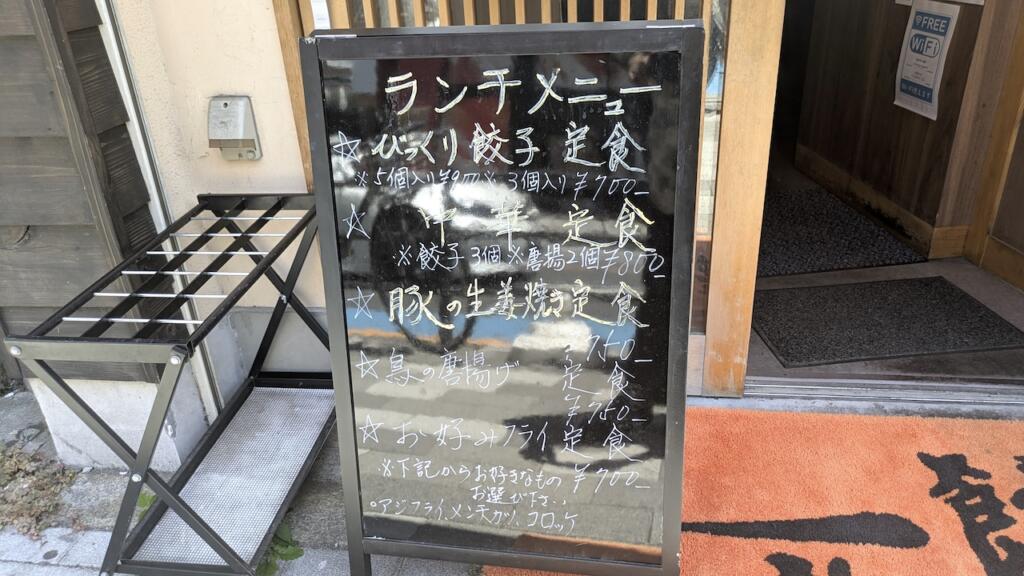 ランチメニュー
☆びっくり餃子定食
※5個入り¥900 ※3個入り¥700-
☆中華定食
※餃子3個※唐揚2個¥800-
☆豚の生姜焼き定食
750-
☆鳥の唐揚げ定食
¥750-
☆お好みフライ定食
¥700-
※下記からお好きなもの
お選び下さい
○アジフライ、メンチカツ、コロッケ
FREE
WiFi